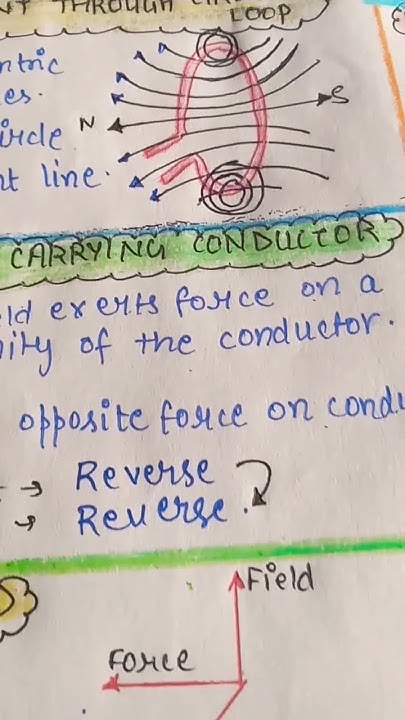 THROUGH
LOOP
ntric
es.
S
N
ircle
nt line.
CARRYING CONDUCTOR
ld exerts force on a
nity of the conductor.
opposite force on condu
→ Reverse
→ Reverse.
Field
Force